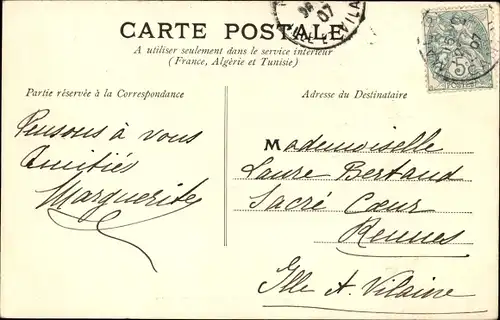 CARTE POSTALE
A utiliser seulement dans le service intérieur
(France, Algérie et Tunisie)
Partie réservée à la Correspondance
Adresse du Destinataire
Pensons à vous
Amitiés
Marguerite
Mademoiselle
Laure Bertaud
Sacré Cœur
Rennes
Ille & Vilaine
07
ILLE-ET-VILAI
5
POSTES
07